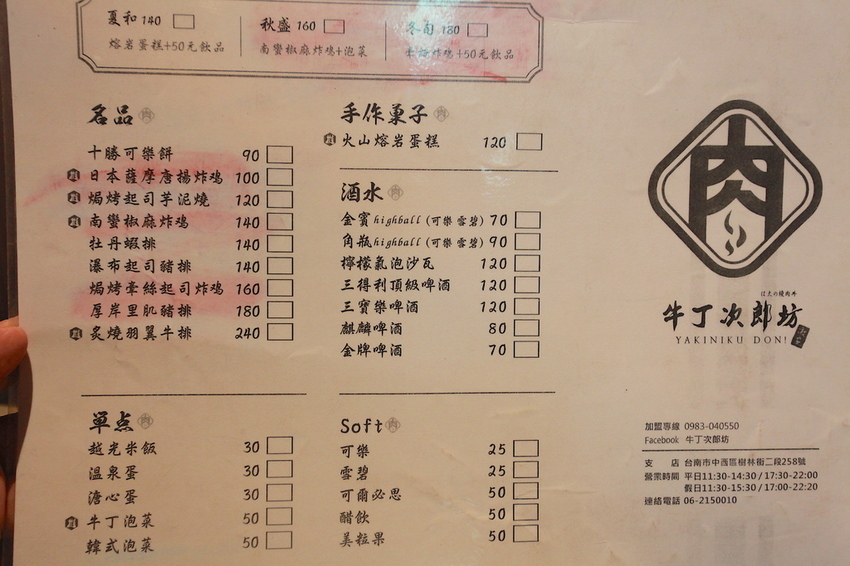 夏和 140
熔岩蛋糕+50元飲品
秋盛 160
南蠻椒麻炸鸡+泡菜
冬旬 180
炸鸡+50元飲品
名品 肉
十勝可樂餅 90
日本薩摩唐揚炸鸡 100
焗烤起司芋泥燒 120
南蠻椒麻炸鸡 140
牡丹蝦排 140
瀑布起司豬排 140
焗烤牽絲起司炸鸡 160
厚岸里肌豬排 180
炙燒羽翼牛排 240
單点 肉
越光米飯 30
溫泉蛋 30
溏心蛋 30
牛丁泡菜 50
韓式泡菜 50
手作菓子 肉
火山熔岩蛋糕 120
酒水 肉
金賓highball (可樂 雪碧) 70
角瓶highball (可樂 雪碧) 90
檸檬氣泡沙瓦 120
三得利頂級啤酒 120
三寶樂啤酒 120
麒麟啤酒 80
金牌啤酒 70
Soft 肉
可樂 25
雪碧 25
可爾必思 50
醋飲 50
美粒果 50
肉
牛丁次郎坊
YAKINIKU DON!
加盟專線 0983-040550
Facebook 牛丁次郎坊
支 店 台南市中西區樹林街二段258號
營業時間 平日11:30-14:30 / 17:30-22:00
假日11:30-15:30 / 17:00-22:20
連絡電話 06-2150010